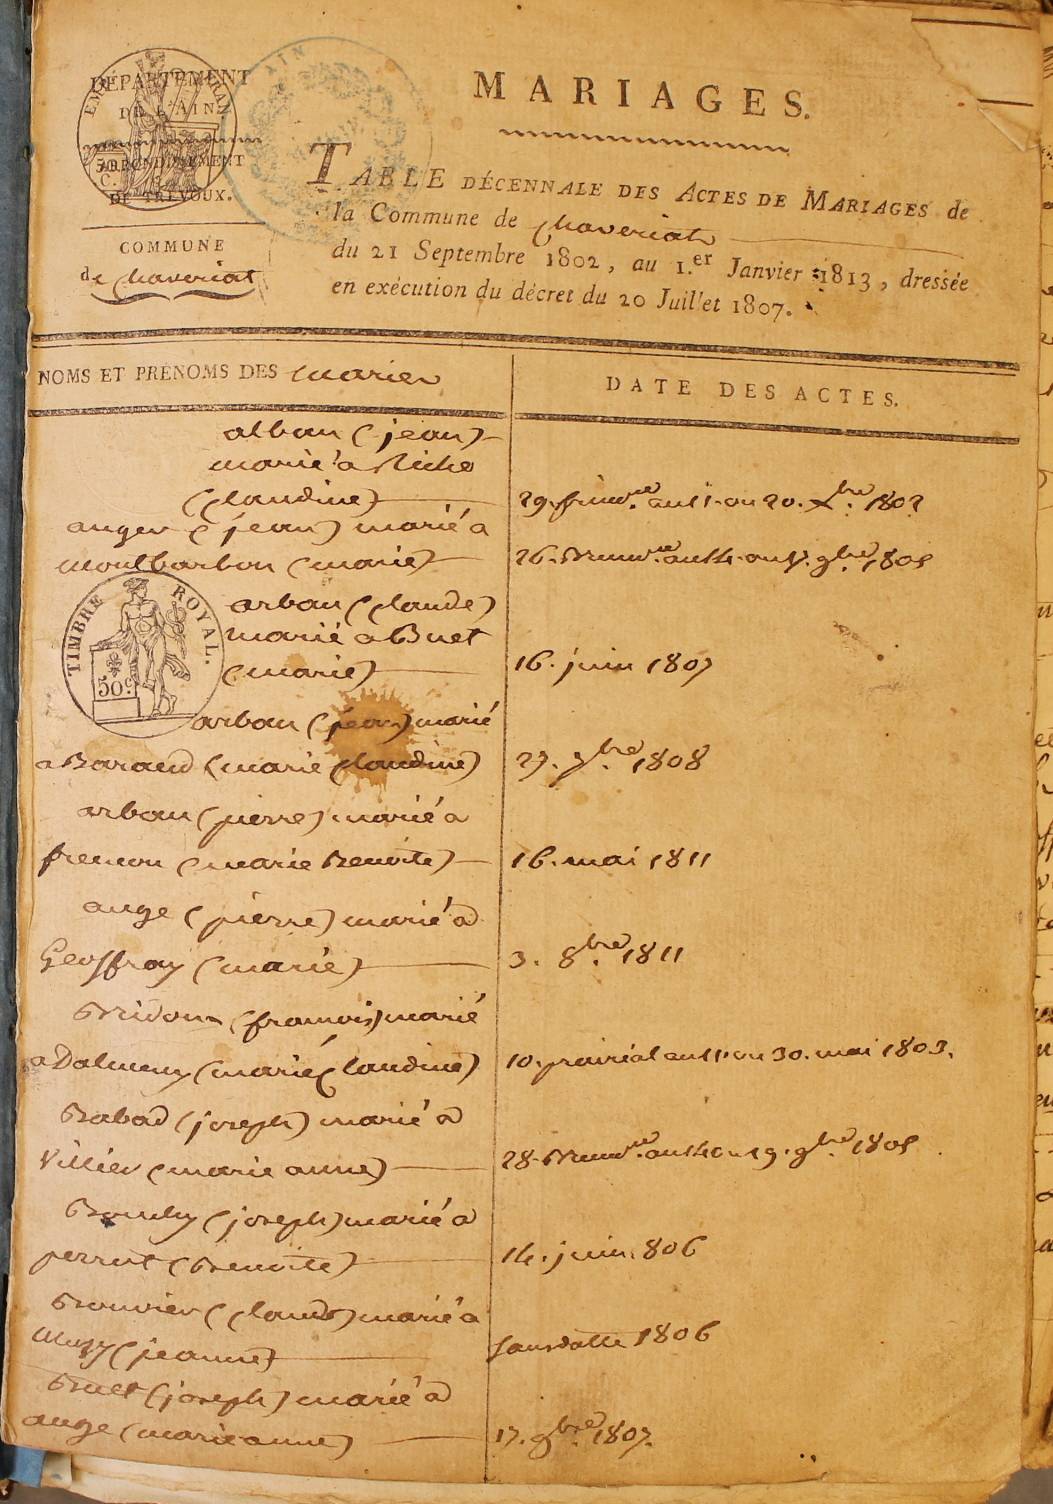 DÉPARTEMENT
DE L'AIN
ARRONDISSEMENT
DE TRÉVOUX.
COMMUNE
de Chaveriat
MARIAGES.
TABLE DÉCENNALE DES ACTES DE MARIAGES de
la Commune de Chaveriat
du 21 Septembre 1802, au 1.er Janvier 1813, dressée
en exécution du décret du 20 Juillet 1807.
NOMS ET PRÉNOMS DES mariés
DATE DES ACTES.
alban (jean)
marié à Riche
(claudine) 29. frimre. an 11. ou 20. Xbre. 1802
anger (jean) marié à
montbarbon (marie) 26. Brumre. an 14. ou 17. 9bre. 1805
TIMBRE ROYAL.
50c
arban (claude)
marié a Buet
(marie) 16. juin 1807
arban (jean) marié
a Baraud (marie claudine) 27. 7bre. 1808
arban (pierre) marié a
fremon (marie Benoite) 16. mai 1811
ange (pierre) marié à
Geoffray (marie) 3. 8bre. 1811
Bridon (francois) marié
a (marie claudine) 10. prairial an 11. ou 30. mai 1803.
Babad (joseph) marié à
Villier (marie anne) 28. Brumre. an 14 ou 19. 9bre. 1805
Bouchy (joseph) marié a
perrut (Benoite) 14. juin 1806
Bouvier (claude) marié a
(jeanne) sans datte 1806
Buet (joseph) marié à
ange (marie anne) 17. 9bre. 1807.